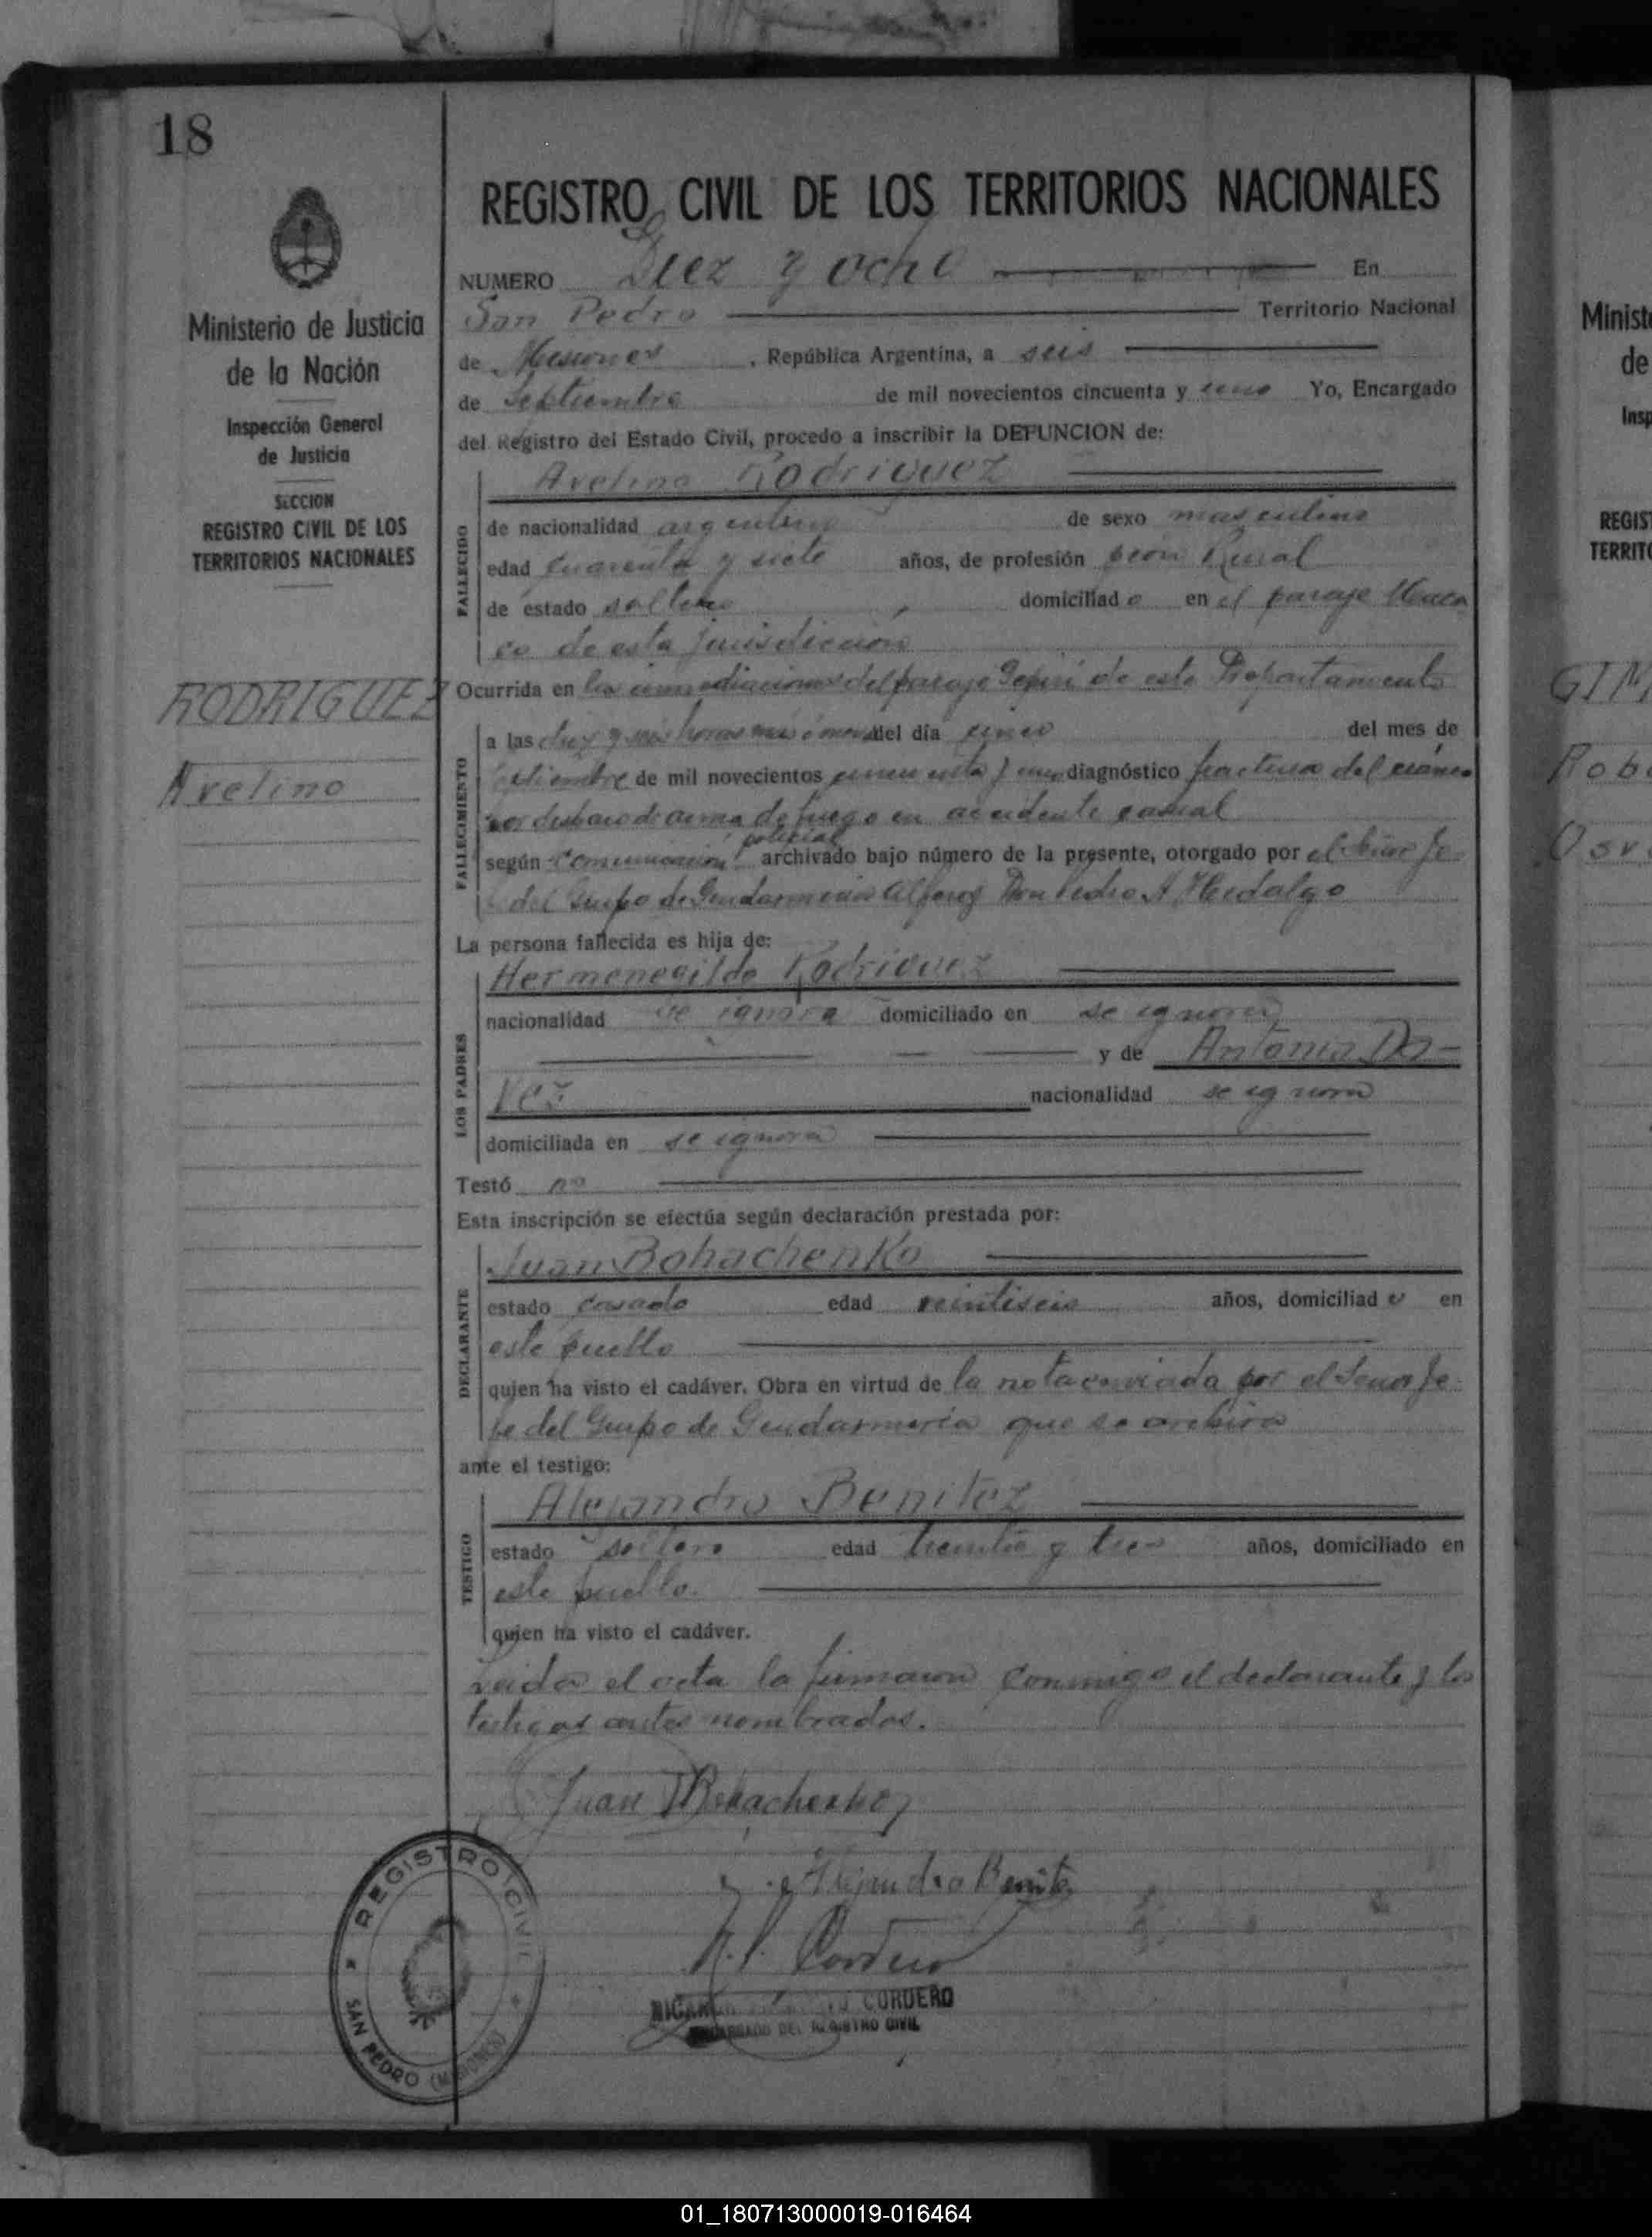 18
Ministerio de Justicia
de la Nación
Inspección General
de Justicia
SECCION
REGISTRO CIVIL DE LOS
TERRITORIOS NACIONALES
RODRIGUEZ
Avelino
REGISTRO CIVIL DE LOS TERRITORIOS NACIONALES
NUMERO Diez y ocho En
San Pedro Territorio Nacional
de Misiones, República Argentina, a seis
de Septiembre de mil novecientos cincuenta y uno Yo, Encargado
del Registro del Estado Civil, procedo a inscribir la DEFUNCION de:
Avelino Rodriguez
FALLECIDO
de nacionalidad argentina de sexo masculino
edad cuarenta y siete años, de profesión peón Rural
de estado soltero domiciliado en el paraje
co de esta jurisdicción
Ocurrida en las inmediaciones del paraje de este Departamento
FALLECIMIENTO
a las diez y seis horas más o menos del día cinco del mes de
septiembre de mil novecientos cincuenta y uno diagnóstico fractura del cráneo
por disparo de arma de fuego en accidente casual
policial
según comunicación archivado bajo número de la presente, otorgado por el Señor Je
del Grupo de Gendarmeria Alferez Don Pedro A Hidalgo
La persona fallecida es hija de:
LOS PADRES
Hermenegildo Rodriguez
nacionalidad se ignora domiciliado en se ignora
y de Antonia Da-
vez nacionalidad se ignora
domiciliada en se ignora
Testó no
Esta inscripción se efectúa según declaración prestada por:
DECLARANTE
Juan Bohachenko
estado casado edad veintiseis años, domiciliado en
este pueblo
quien ha visto el cadáver. Obra en virtud de la nota enviada por el Señor Je
fe del Grupo de Gendarmeria que se archiva
ante el testigo:
TESTIGO
Alejandro Benitez
estado soltero edad treinta y tres años, domiciliado en
este pueblo.
quien ha visto el cadáver.
Leida el acta la firmaron conmigo el declarante y los
testigos antes nombrados.
Juan Bohachenko
Alejandro Benitez
R. Cordero
CORDERO
ENCARGADO DEL REGISTRO CIVIL
REGISTRO CIVIL
SAN PEDRO (MISIONES)
Minist
de
Insp
REGIST
TERRITO
GIM
Rob
Osv
01_180713000019-016464